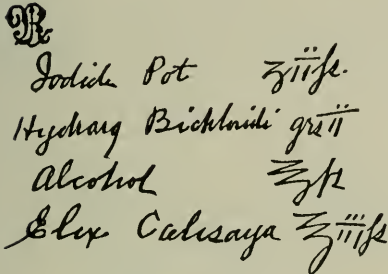 ℞
Iodide Pot ʒiiſs.
Hydrarg Bichloridi grs ii
Alcohol ℥ſs
Elix Calisaya ℥iiiſs